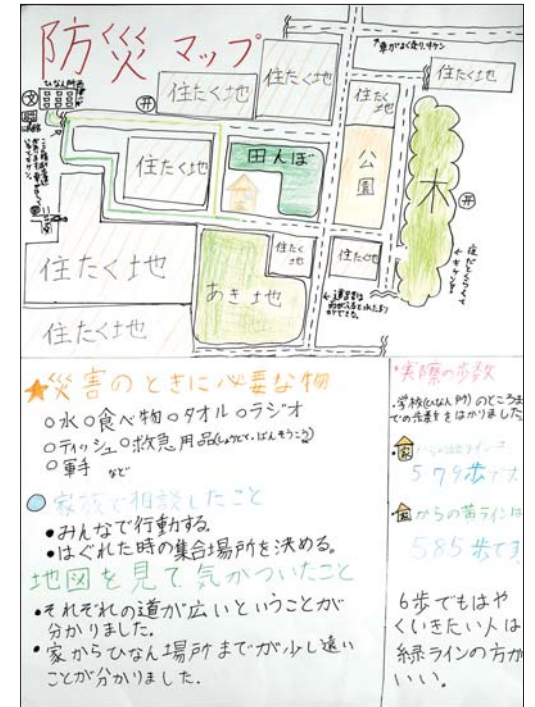 防災マップ
ひなん所
文
住たく地
住たく地
住たく地
住たく地
住たく地
田んぼ
公園
木
住たく地
住たく地
あき地
住たく地
住たく地
★災害のときに必要な物
○水○食べ物○タオル○ラジオ
○ティッシュ○救急用品(しょうどく・ばんそうこう)
○軍手 など
家族で相談したこと
•みんなで行動する。
•はぐれた時の集合場所を決める。
地図を見て気がついたこと
•それぞれの道が広いということが
分かりました。
•家からひなん場所までが少し遠い
ことが分かりました.
•実際の歩数
•学校(ひなん所)のところま
での歩数をはかりました
•家からの緑ラインは
579歩です
家からの黄ラインは
585歩です
6歩でもはや
くいきたい人は
緑ラインの方が
いい。